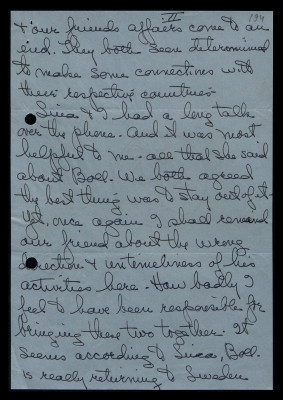 III
194
& our friends affairs come to an
end. They both seem determined
to make some connections with
their respective countries-
Sinca & I had a long talk
over the phone. And it was most
helpful to me - all that she said
about Boll. We both agreed
the best thing was to stay out of it-
Yet, once again I shall remind
our friend about the wrong
direction & untimeliness of his
activities here. How badly I
feel to have been responsible for
bringing these two together. It
seems according to Sinca, Boll.
is really returning to Sweden